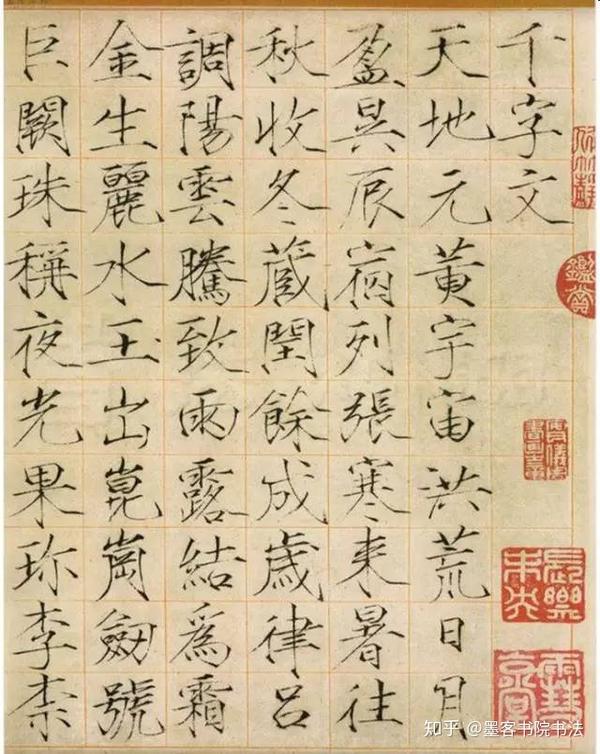 千字文
天地元黃宇宙洪荒日月
盈昃辰宿列張寒来暑往
秋收冬蔵閏餘成歲律呂
調陽雲騰致雨露結爲霜
金生麗水玉出崑崗劒號
巨闕珠稱夜光果珎李柰
鑑賞
長樂未央
知乎 @墨客书院书法